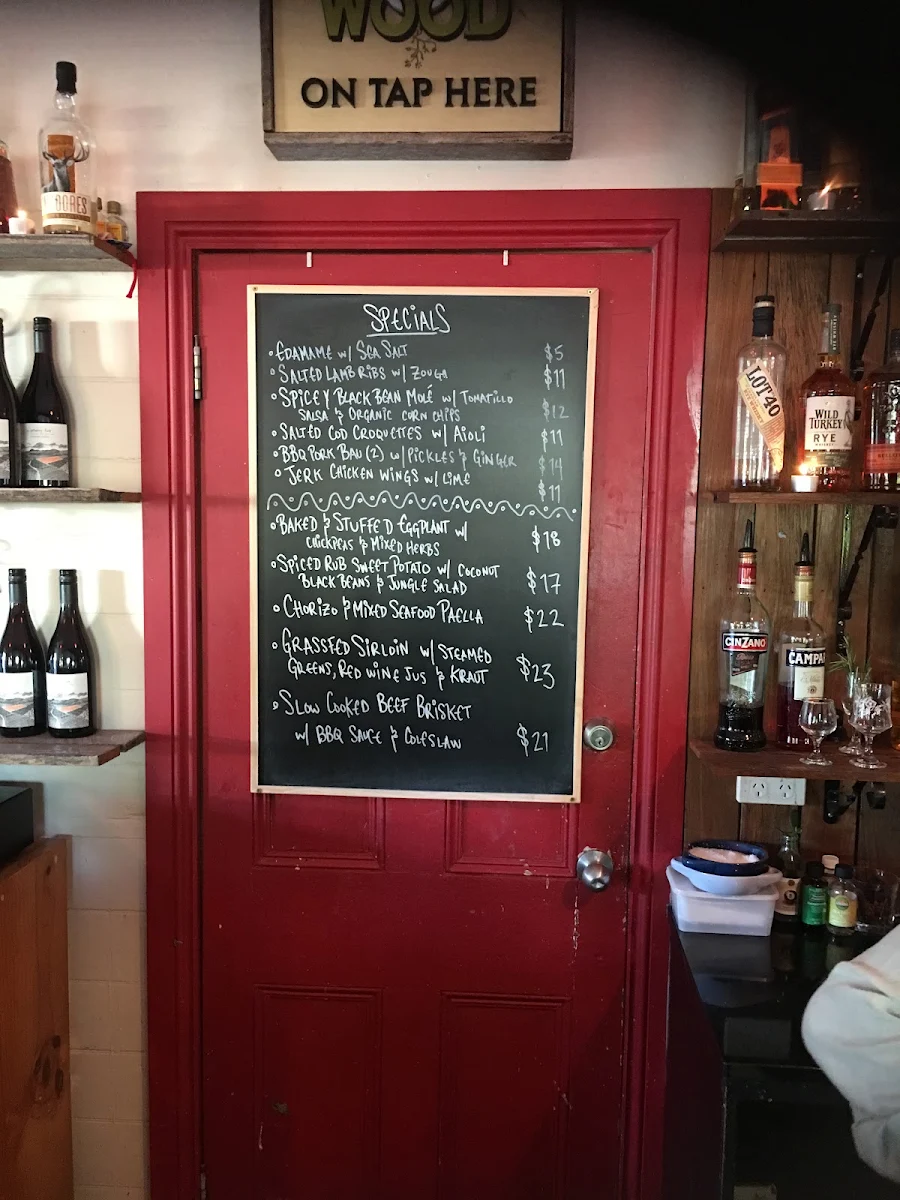 WOOD
ON TAP HERE
SPECIALS
EDAMAME w/ SEA SALT $5
SALTED LAMB RIBS w/ ZOUGA $11
SPICEY BLACK BEAN MOLÉ w/ TOMATILLO
SALSA & ORGANIC CORN CHIPS $12
SALTED COD CROQUETTES w/ AIOLI $11
BBQ PORK BAU (2) w/ PICKLES & GINGER $14
JERK CHICKEN WINGS w/ LIME $11
BAKED & STUFFED EGGPLANT w/
CHICKPEAS & MIXED HERBS $18
SPICED RUB SWEET POTATO w/ COCONUT
BLACK BEANS & JUNGLE SALAD $17
CHORIZO & MIXED SEAFOOD PAELLA $22
GRASSFED SIRLOIN w/ STEAMED
GREENS, RED WINE JUS & KRAUT $23
SLOW COOKED BEEF BRISKET
w/ BBQ SAUCE & COLESLAW $21
LOT 40
WILD
TURKEY
RYE
CINZANO
CAMPARI